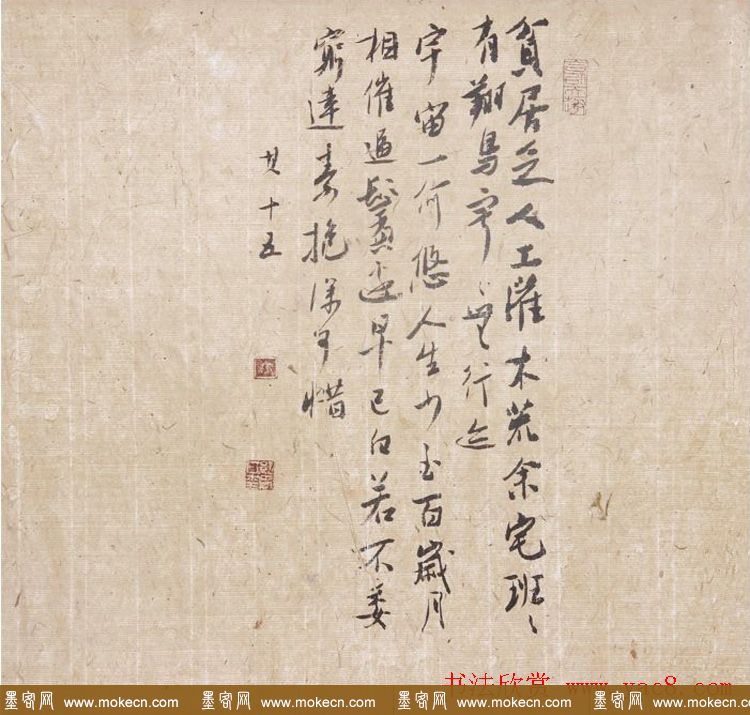 貧居乏人工灌木荒余宅班〻
有翔鳥寂〻無行迹
宇宙一何悠人生少至百歲月
相催逼鬢邊早已白若不委
窮達素抱深可惜
其十五
书法欣赏 www.yac8.com
墨客网 www.mokecn.com 墨客网 www.mokecn.com 墨客网 www.mokecn.com 墨客网 www.mokecn.com